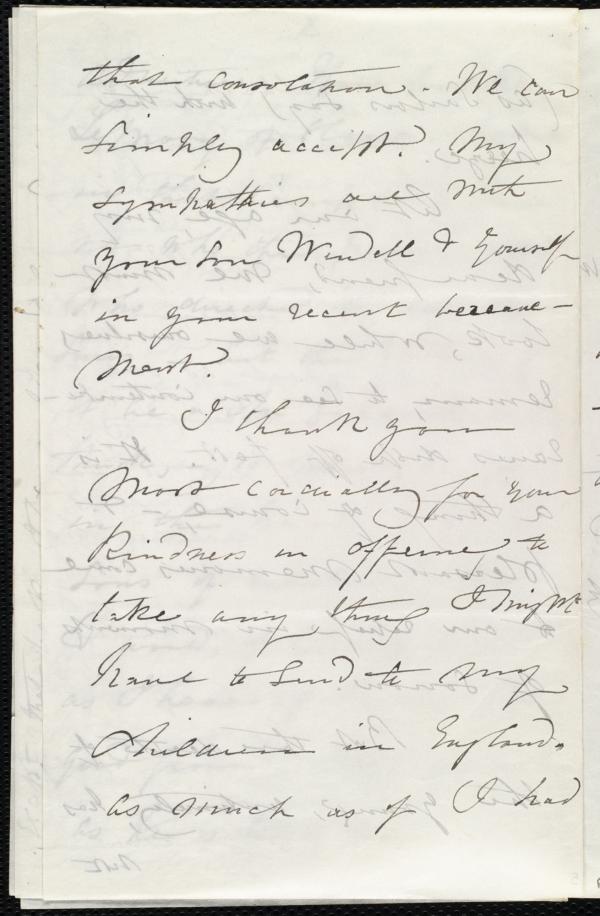 that consolation. We can
simply accept. My
sympathies are with
your son Wendell & yourself
in your recent bereave-
ment.
I thank you
most cordially for your
kindness in offering to
take any thing I might
have to send to my
children in England,
as much as if I had